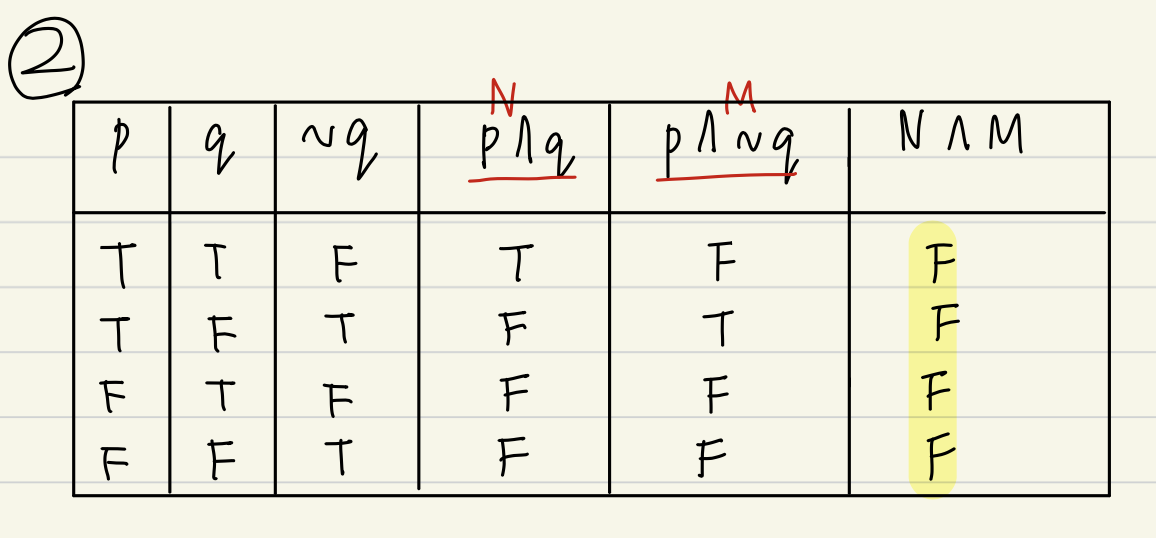 ②
N M
p q ~q p∧q p∧~q N ∧ M
T T F T F F
T F T F T F
F T F F F F
F F T F F F